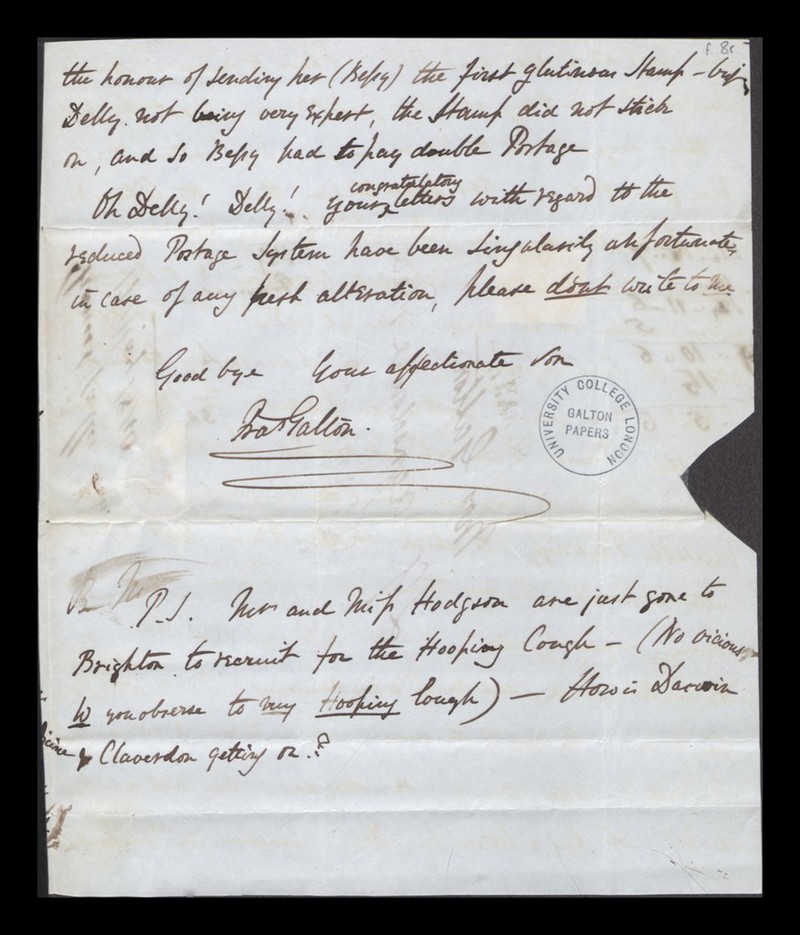 f. 8r
the honour of sending her (Bessy) the first glutinous Stamp – but
Delly. not being very expert, the Stamp did not stick
on, and so Bessy had to pay double Postage
Oh Delly! Delly! your congratulatory letters with regard to the
reduced Postage System have been singularily unfortunate,
in case of any fresh alteration, please dont write to me
Good bye Your affectionate Son
Fras Galton.
UNIVERSITY COLLEGE LONDON
GALTON
PAPERS
P.S. Mrs and Miss Hodgson are just gone to
Brighton to recruit for the Hooping Cough – (No vicious
W you observe to my Hooping Cough) – How is Darwin
& Claverdon getting on.?